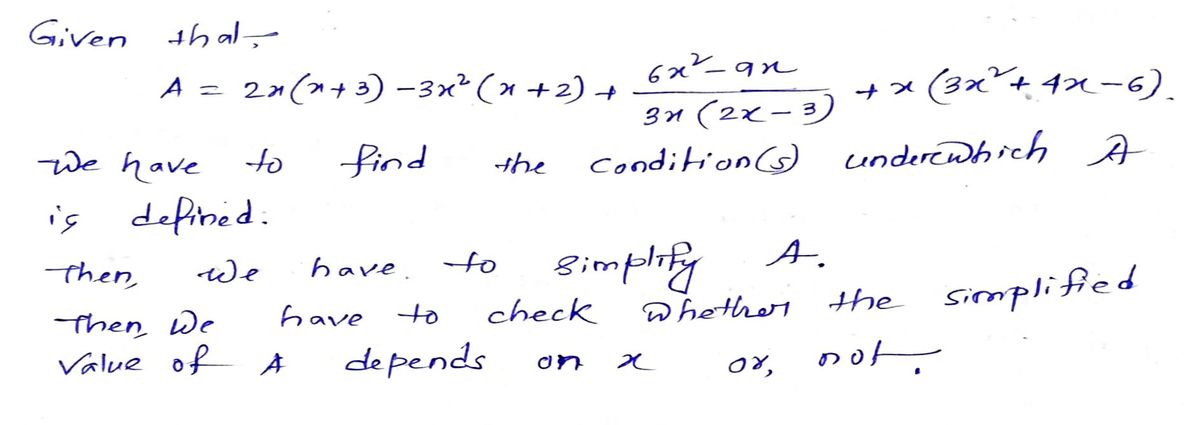 Given that,
A = 2x(x+3) - 3x²(x+2) + (6x²-9x)/(3x(2x-3)) + x(3x²+4x-6).
We have to find the condition(s) under which A
is defined.
Then, we have to simplify A.
Then, we have to check whether the simplified
value of A depends on x or, not.